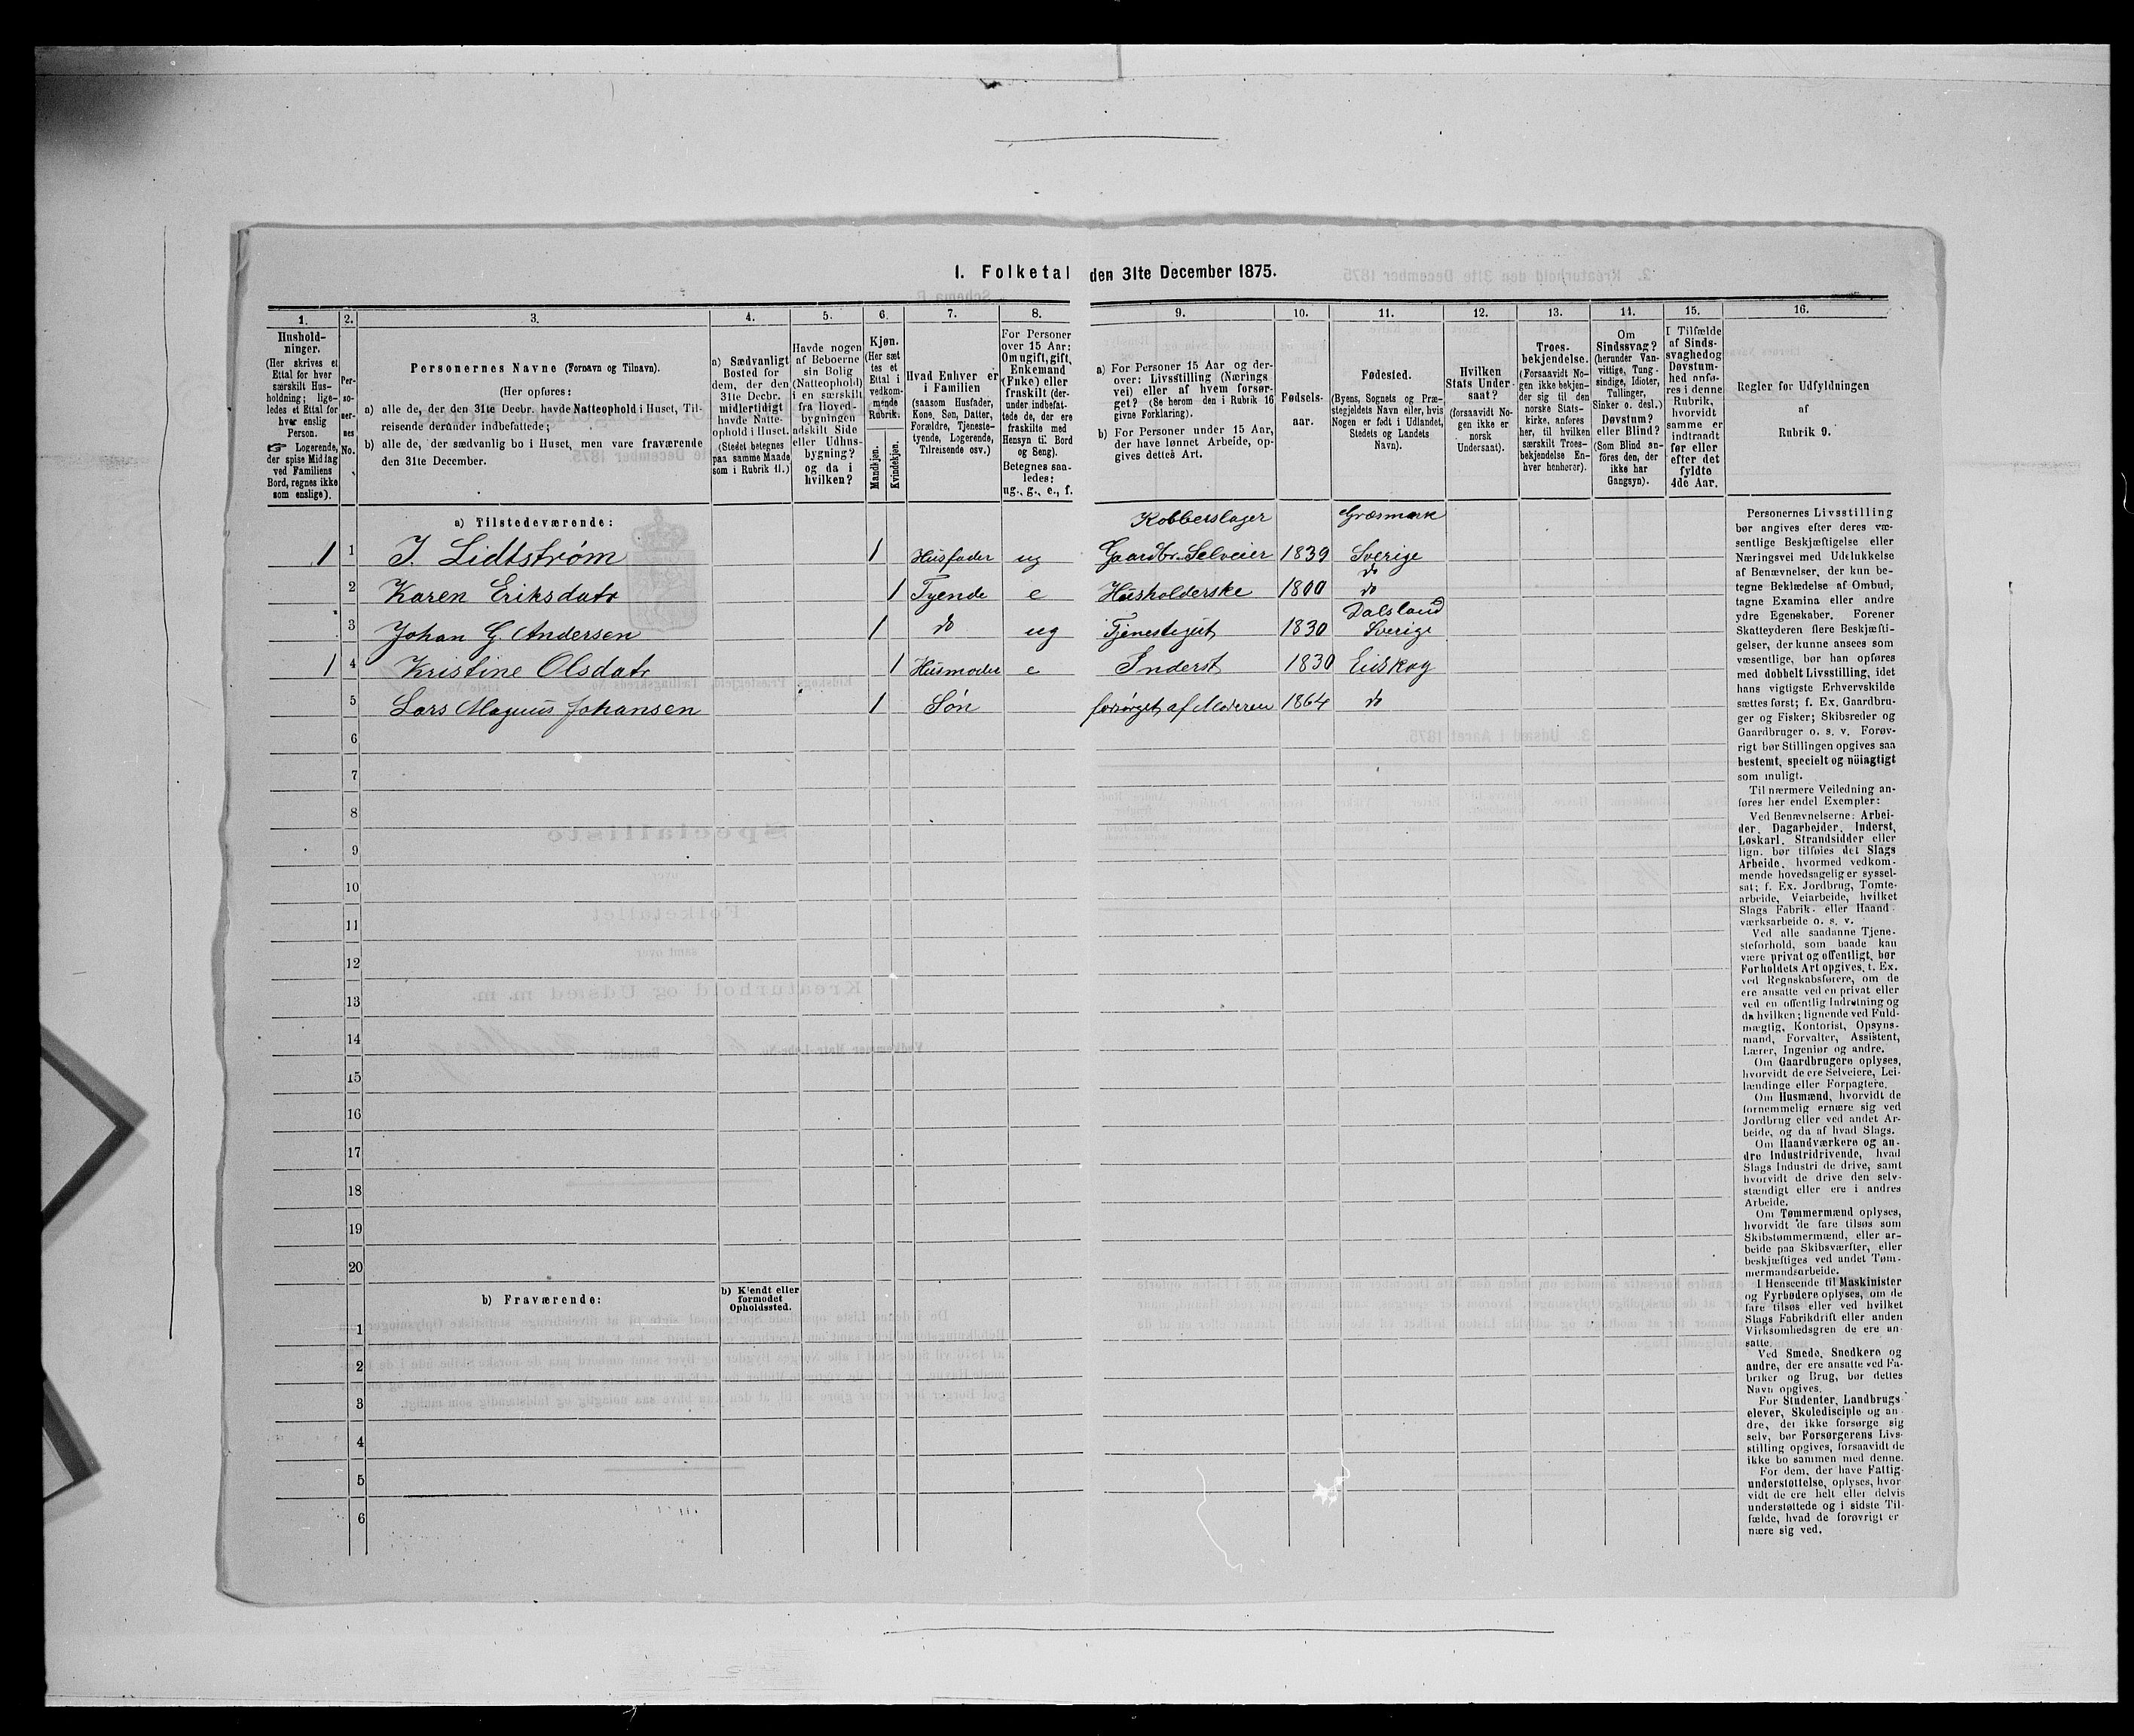 1. Folketal den 31te December 1875.
1. 2. 3. 4. 5. 6. 7. 8. 9. 10. 11. 12. 13. 11. 15. 16.
Hushold-
ninger.
(Her skrives et
Ettal for hver
særskilt Hus-
holdning; lige-
ledes et Ettal for
hver enslig
Person.
☞ Logerende,
der spise Midlag
ved Familiens
Bord, regnes ikke
som enslige).
Per-
so-
ner-
nes
No.
Personernes Navne (Fornavn og Tilnavn).
(Her opføres:
a) alle de, der den 31te Decbr. havde Natteophold i Huset, Til-
reisende derunder indbefattede;
b) alle de, der sædvanlig bo i Huset, men vare fraværende
den 31te December.
a) Sædvanligt
Bosted for
dem, der den
31te Decbr.
midlertidigt
havde Natte-
ophold i Huset.
(Stedet betegnes
paa samme Maade
som i Rubrik 11.)
Havde nogen
af Beboerne
sin Bolig
(Natteophold)
i en særskilt
fra Hoved-
bygningen
adskilt Side
eller Udhus-
bygning?
og da i
hvilken?
Kjøn.
(Her sæt
tes et
Ettal i
vedkom-
mende
Rubrik.
Mandkjøn.
Kvindekjøn.
Hvad Enhver er
i Familien
(saasom Husfader,
Kone, Søn, Datter,
Forældre, Tjeneste-
tyende, Logerende,
Tilreisende osv.)
For Personer
over 15 Aar:
Om ugift, gift,
Enkemand
(Enke) eller
fraskilt (der-
under indbefat-
tede de, der ere
fraskilte med
Hensyn til Bord
og Seng).
Betegnes saa-
ledes:
ug., g., e., f.
a) For Personer 15 Aar og der-
over: Livsstilling (Nærings
vei) eller af hvem forsør-
get? (Se herom den i Rubrik 16
givne Forklaring).
b) For Personer under 15 Aar,
der have lønnet Arbeide, op-
gives dettes Art.
Fødsels-
aar.
Fødested.
(Byens, Sognets og Præ-
stegjeldets Navn eller, hvis
Nogen er født i Udlandet,
Stedets og Landets
Navn).
Hvilken
Stats Under-
saat?
(forsaavidt No-
gen ikke er
norsk
Undersaat).
Troes-
bekjendelse.
(Forsaavidt No-
gen ikke bekjen-
der sig til den
norske Stats-
kirke, anføres
her, til hvilken
særskilt Troes-
bekjendelse En-
hver henhører).
Om
Sindssvag?
(herunder Van-
vittige, Tung-
sindige, Idioter,
Tullinger,
Sinker o. desl.)
Døvstum?
eller Blind?
(Som Blind an-
föres den, der
ikke har
Gangsyn).
I Tilfælde
af Sinds-
svaghed og
Døvstum-
hed anfø-
res i denne
Rubrik,
hvorvidt
samme er
indtraadt
før eller
efter det
fyldte
4de Aar.
Regler for Udfyldningen
af
Rubrik 9.
a) Tilstedeværende:
Kobberslager Græsmark
1 1 J. Lidtstrøm 1 Husfader ug Gaardbr. Selveier 1839 Sverige
do
2 Karen Eriksdatr 1 Tyende e Husholderske 1800 do
Dalsland
3 Johan G. Andersen 1 do ug Tjenestegut 1830 Sverige
1 4 Kristine Olsdatr 1 Husmoder e Inderst 1830 Eidskog
5 Lars Magnus Johansen 1 Søn forsørget af Moderen 1864 do
6
7
8
9
10
11
12
13
14
15
16
17
18
19
20
b) Fraværende:
b) Kjendt eller
formodet
Opholdssted.
1
2
3
4
5
6
Personernes Livsstilling
bør angives efter deres væ-
sentlige Beskjæftigelse eller
Næringsvei med Udelukkelse
af Benævnelser, der kun be-
tegne Beklædelse af Ombud,
tagne Examina eller andre
ydre Egenskaber. Forener
Skatteyderen flere Beskjæfti-
gelser, der kunne ansees som
væsentlige, bør han opføres
med dobbelt Livsstilling, idet
hans vigtigste Erhvervskilde
sættes først; f. Ex. Gaardbru-
ger og Fisker; Skibsreder og
Gaardbruger o. s. v. Forøv-
rigt bør Stillingen opgives saa
bestemt, specielt og nöiagtigt
som muligt.
Til nærmere Veiledning an-
føres her endel Exempler:
Ved Benævnelserne: Arbei-
der, Dagarbeider, Inderst,
Løskarl, Strandsidder eller
lign. bør tilføies det Slags
Arbeide, hvormed vedkom-
mende hovedsagelig er syssel-
sat; f. Ex. Jordbrug, Tomte-
arbeide, Veiarbeide, hvilket
Slags Fabrik- eller Haand-
værksarbeide o. s. v.
Ved alle saadanne Tjene-
steforhold, som baade kan
være privat og offentligt, bør
Forholdets Art opgives, t. Ex.
ved Regnskabsførere, om de
ere ansatte ved en privat eller
ved en offentlig Indretning og
da hvilken; lignende ved Fuld-
mægtig, Kontorist, Opsyns-
mand, Forvalter, Assistent,
Lærer, Ingeniør og andre.
Om Gaardbrugere oplyses,
hvorvidt de ere Selveiere, Lei-
lændinge eller Forpagtere.
Om Husmænd, hvorvidt de
fornemmelig ernære sig ved
Jordbrug eller ved andet Ar-
beide, og da af hvad Slags.
Om Haandværkere og an-
dre Industridrivende, hvad
Slags Industri de drive, samt
hvorvidt de drive den selv-
stændigt eller ere i andres
Arbeide.
Om Tømmermænd oplyses,
hvorvidt de fare tilsøs som
Skibstømmermænd, eller ar-
beide paa Skibsværfter, eller
beskjæftiges ved andet Tøm-
mermandsarbeide.
I Henseende til Maskinister
og Fyrbødere oplyses, om de
fare tilsøs eller ved hvilket
Slags Fabrikdrift eller anden
Virksomhedsgren de ere an-
satte.
Ved Smede, Snedkere og
andre, der ere ansatte ved Fa-
briker og Brug, bør dettes
Navn opgives.
For Studenter, Landbrugs
elever, Skoledisciple og an-
dre, der ikke forsørge sig
selv, bør Forsørgerens Livs-
stilling opgives, forsaavidt de
ikke bo sammen med denne.
For dem, der have Fattig-
understøttelse, oplyses, hvor
vidt de ere helt eller delvis
understøttede og i sidste Til-
fælde, hvad de forøvrigt er
nære sig ved.